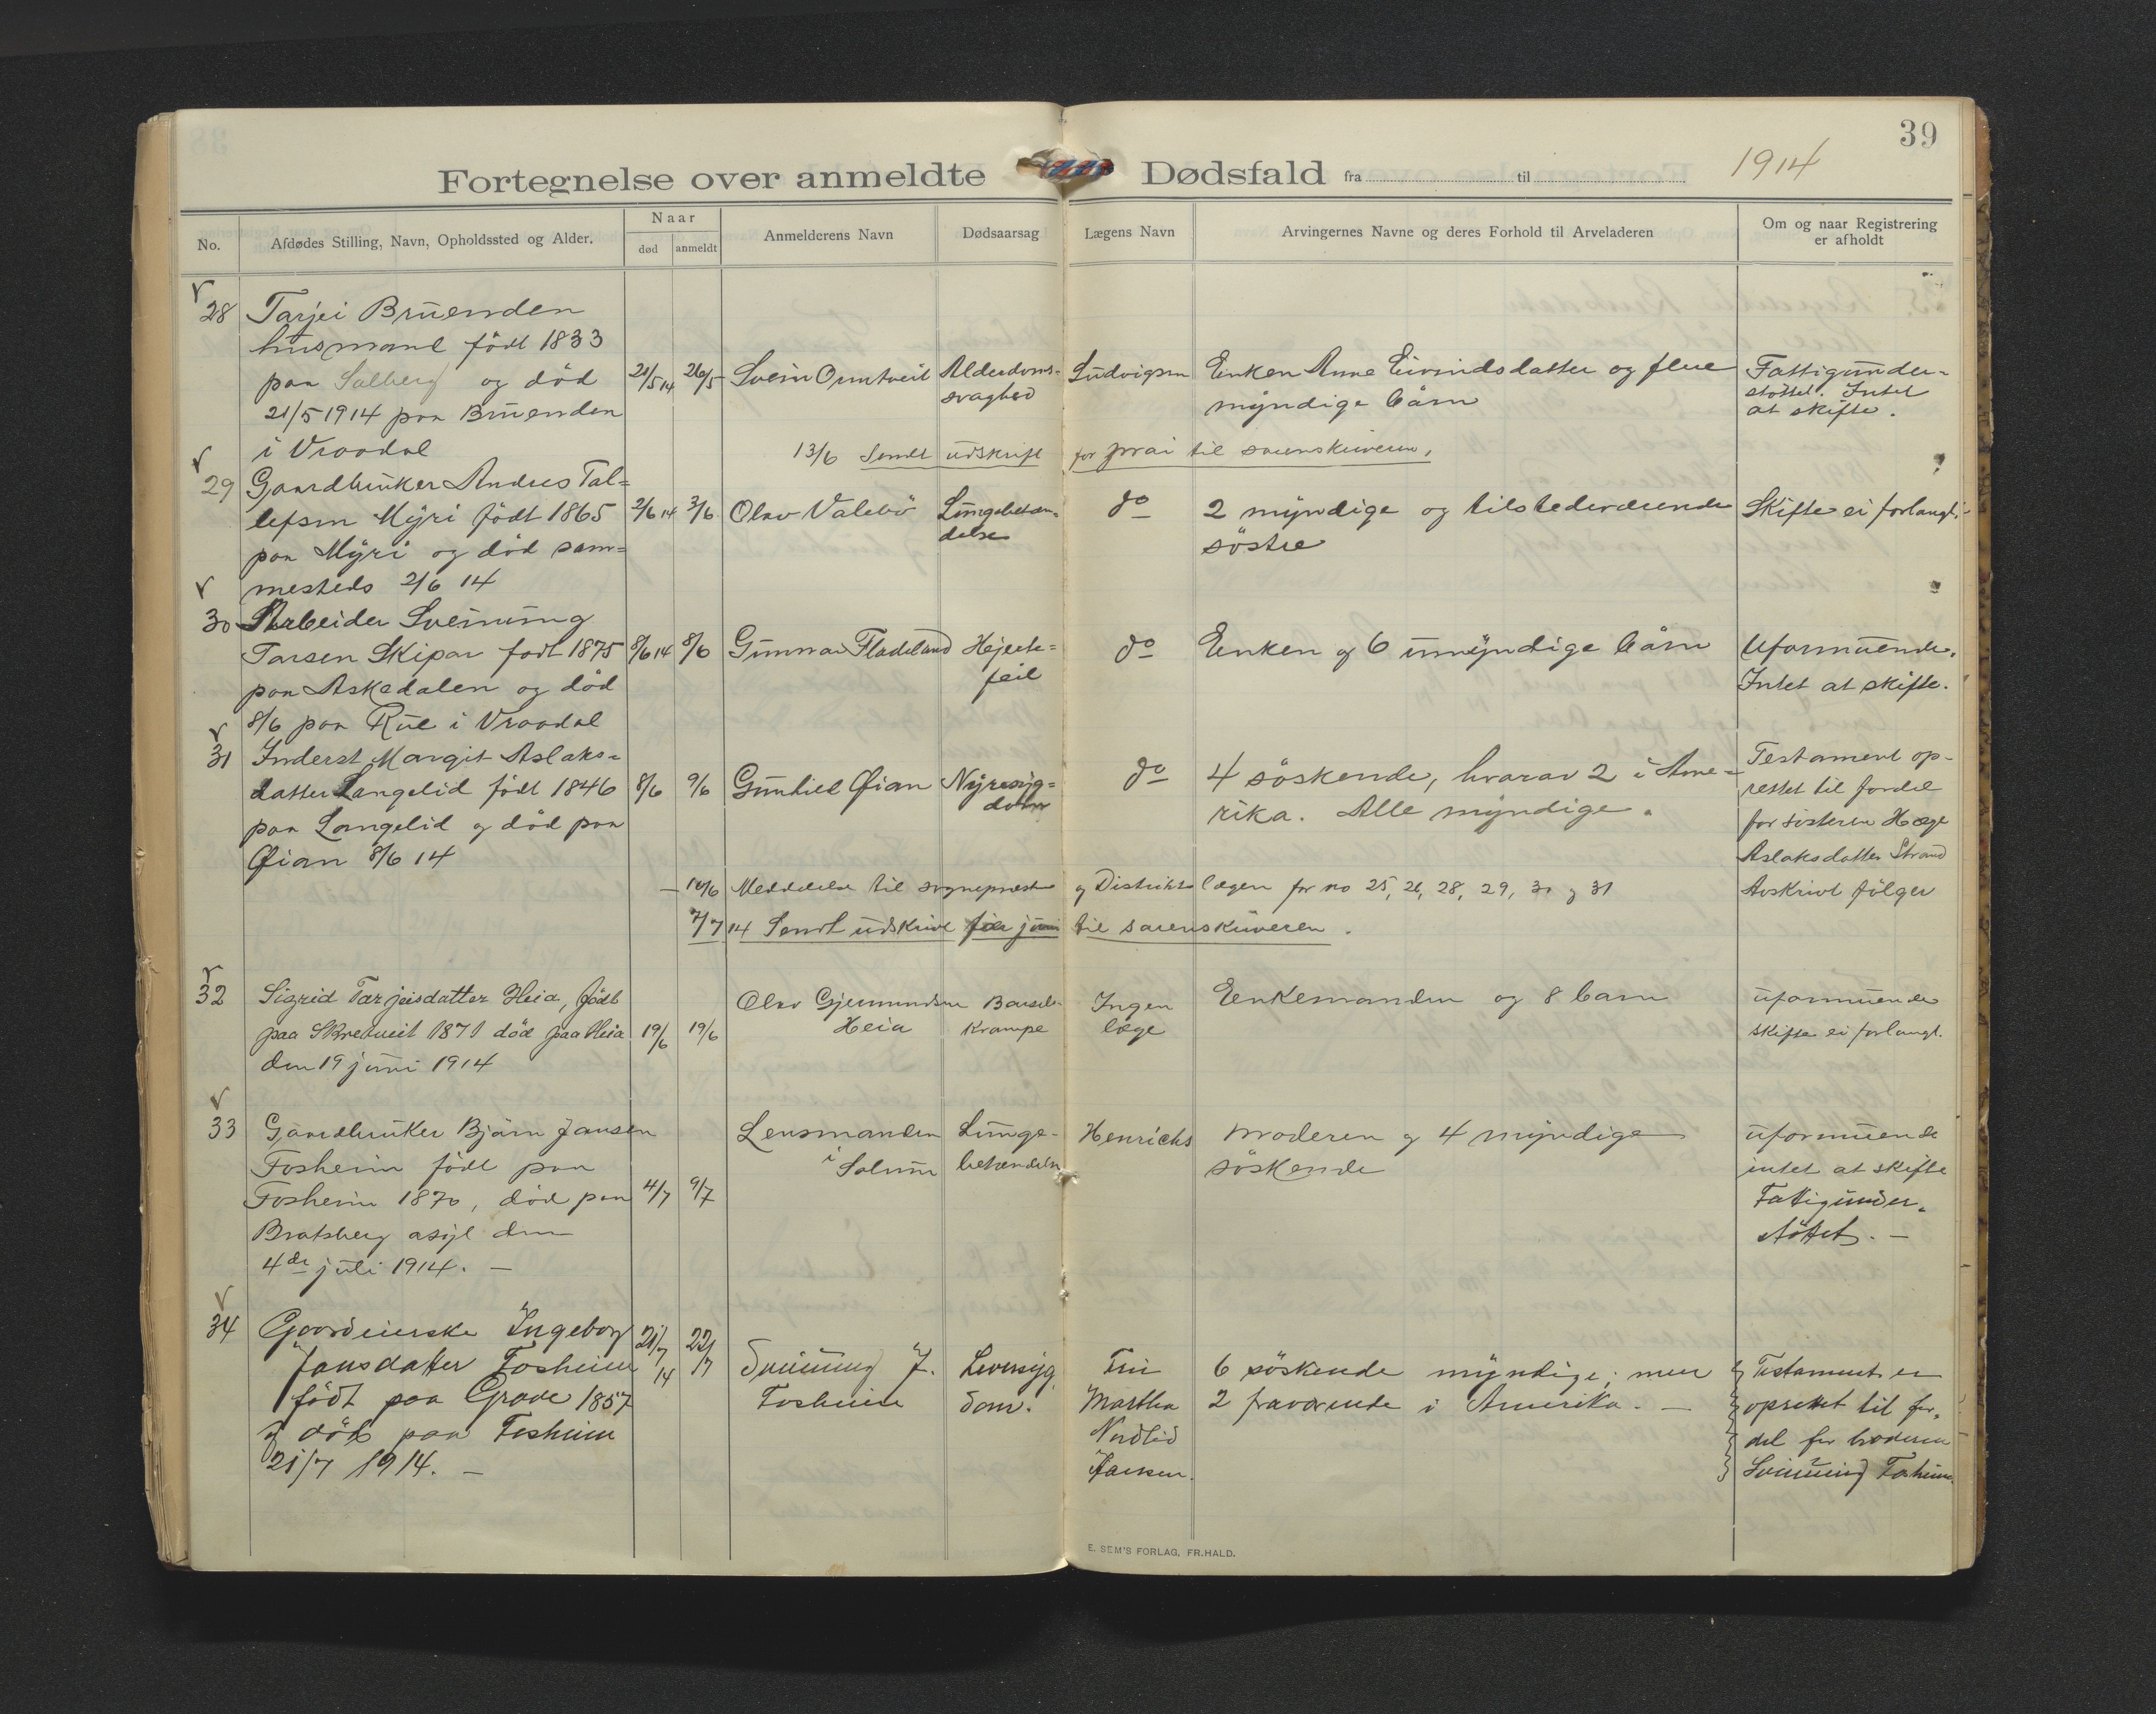 39
Fortegnelse over anmeldte Dødsfald fra til 1914
No.
Afdødes Stilling, Navn, Opholdssted og Alder.
Naar
død
anmeldt
Anmelderens Navn
Dødsaarsag
Lægens Navn
Arvingernes Navne og deres Forhold til Arveladeren
Om og naar Registrering
er afholdt
28
Tarjei Brüenden
hüsmand född 1833
paa Salberg og död
21/5 1914 paa Brüenden
i Vraadal
21/5 14
26/5
Svein Ormtveit
Alderdoms-
svaghed
Ludvigsen
Enken Anne Eivindsdatter og flere
myndige børn
Fattigunder-
støttet. Intet
at skifte.
13/6 Sendt üdskrift for mai til sorenskriveren.
29
Gaardbrüker Andres Tal-
lefsen Myri født 1865
paa Myri og død sam-
mesteds 2/6 14
2/6 14
3/6
Olav Valebö
Lüngebetæn-
delse
do
2 myndige og tilstedeværende
söstre
Skifte ei forlangt.
30
Arbeider Sveinüng
Tarsen Skipar født 1875
paa Askedalen og död
8/6 paa Rüe i Vraadal
8/6 14
8/6
Gunnar Fladeland
Hjerte-
feil
do
Enken og 6 ümyndige børn
Uformüende.
Intet at skifte.
31
Inderst Margit Aslaks-
datter Langelid født 1846
paa Langelid og död paa
Øian 8/6 14
8/6
9/6
Günhild Øian
Nyresyg-
dom
do
4 söskende, hvorav 2 i Ame-
rika. Alle myndige.
Testament op-
rettet til fordel
for sösteren Hæge
Aslaksdatter Strand
Avskrivt fölger
10/6 Meddelelse til sognepresten og Distriktslægen for no 25, 26, 28, 29, 30 og 31
7/7 14 Sendt üdskrivt for jüni til sorenskriveren.
32
Sigrid Tarjeisdatter Heia, født
paa Skretveit 1871 död paa Heia
den 19 jüni 1914
19/6
19/6
Olav Gjermundsen
Heia
Barsels-
krampe
Ingen
læge
Enkemanden og 8 barn
üformüende
skifte ei forlangt.
33
Gaardbrüker Bjørn Jansen
Fosheim född paa
Fosheim 1870, död paa
Bratsberg asyl den
4de jüli 1914. —
4/7
9/7
Lensmanden
i Solum
Lünge-
betændelse
Henrichs
moderen og 4 myndige
söskende
üformüende
intet at skifte
Fattigünder-
støttet. —
34
Gaardeierske Ingeborg
Jansdatter Fosheim
född paa Grave 1857
og död paa Fosheim
21/7 1914. —
21/7 14
22/7
Sveinüng J.
Fosheim
Leversyg
dom.
Frü
Martha
Nordlid
Jansen.
6 söskende myndige; men
2 fraværende i Amerika. —
Testament er
oprettet til for-
del for broderen
Sveinüng Fosheim.
E. SEM'S FORLAG, FR.HALD.